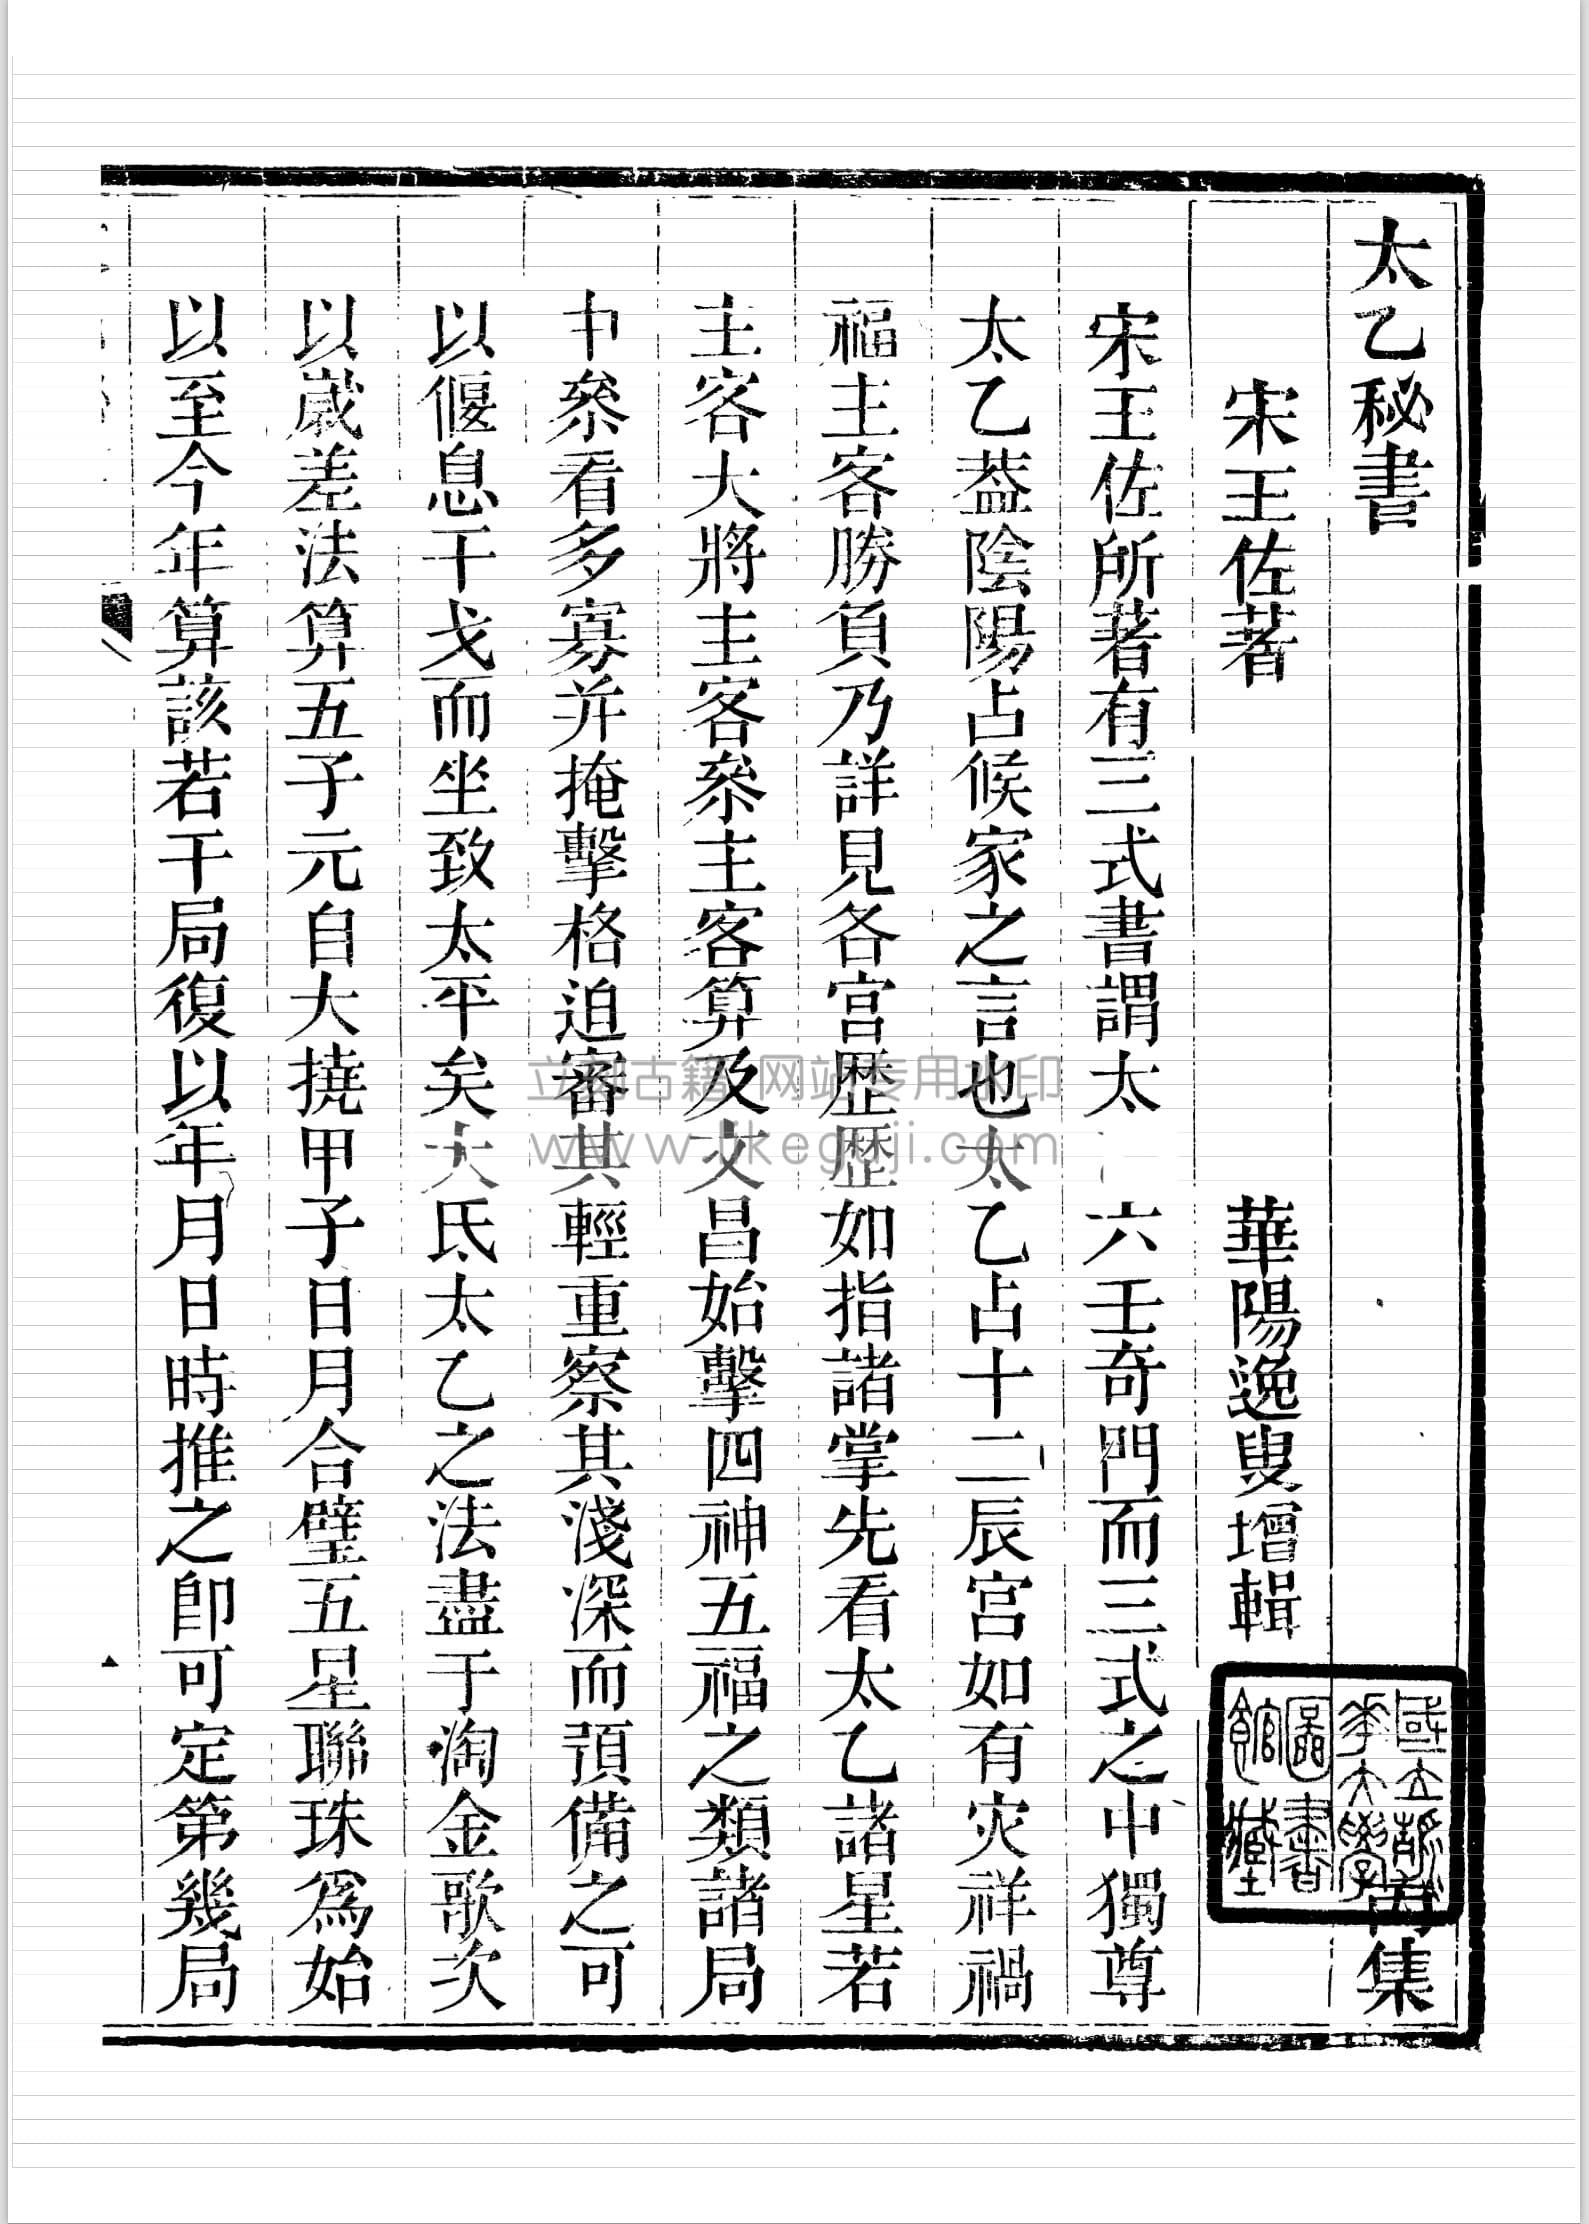 太乙秘書　丙集
宋王佐著　華陽逸叟增輯
宋王佐所著有三式書謂太六壬奇門而三式之中獨尊
太乙葢陰陽占候家之言也太乙占十二辰宮如有灾祥禍
福主客勝負乃詳見各宮歷歷如指諸掌先看太乙諸星若
主客大將主客叅主客算及文昌始擊四神五福之類諸局
中叅看多寡并掩擊格迫審其輕重察其淺深而預備之可
以偃息干戈而坐致太平矣大氐太乙之法盡于淘金歌次
以歲差法算五子元自大撓甲子日月合璧五星聯珠爲始
以至今年算該若干局復以年月日時推之卽可定第幾局
國立清
華大學
圖書
館藏
立刻古籍 网站专用水印
www.likeguji.com